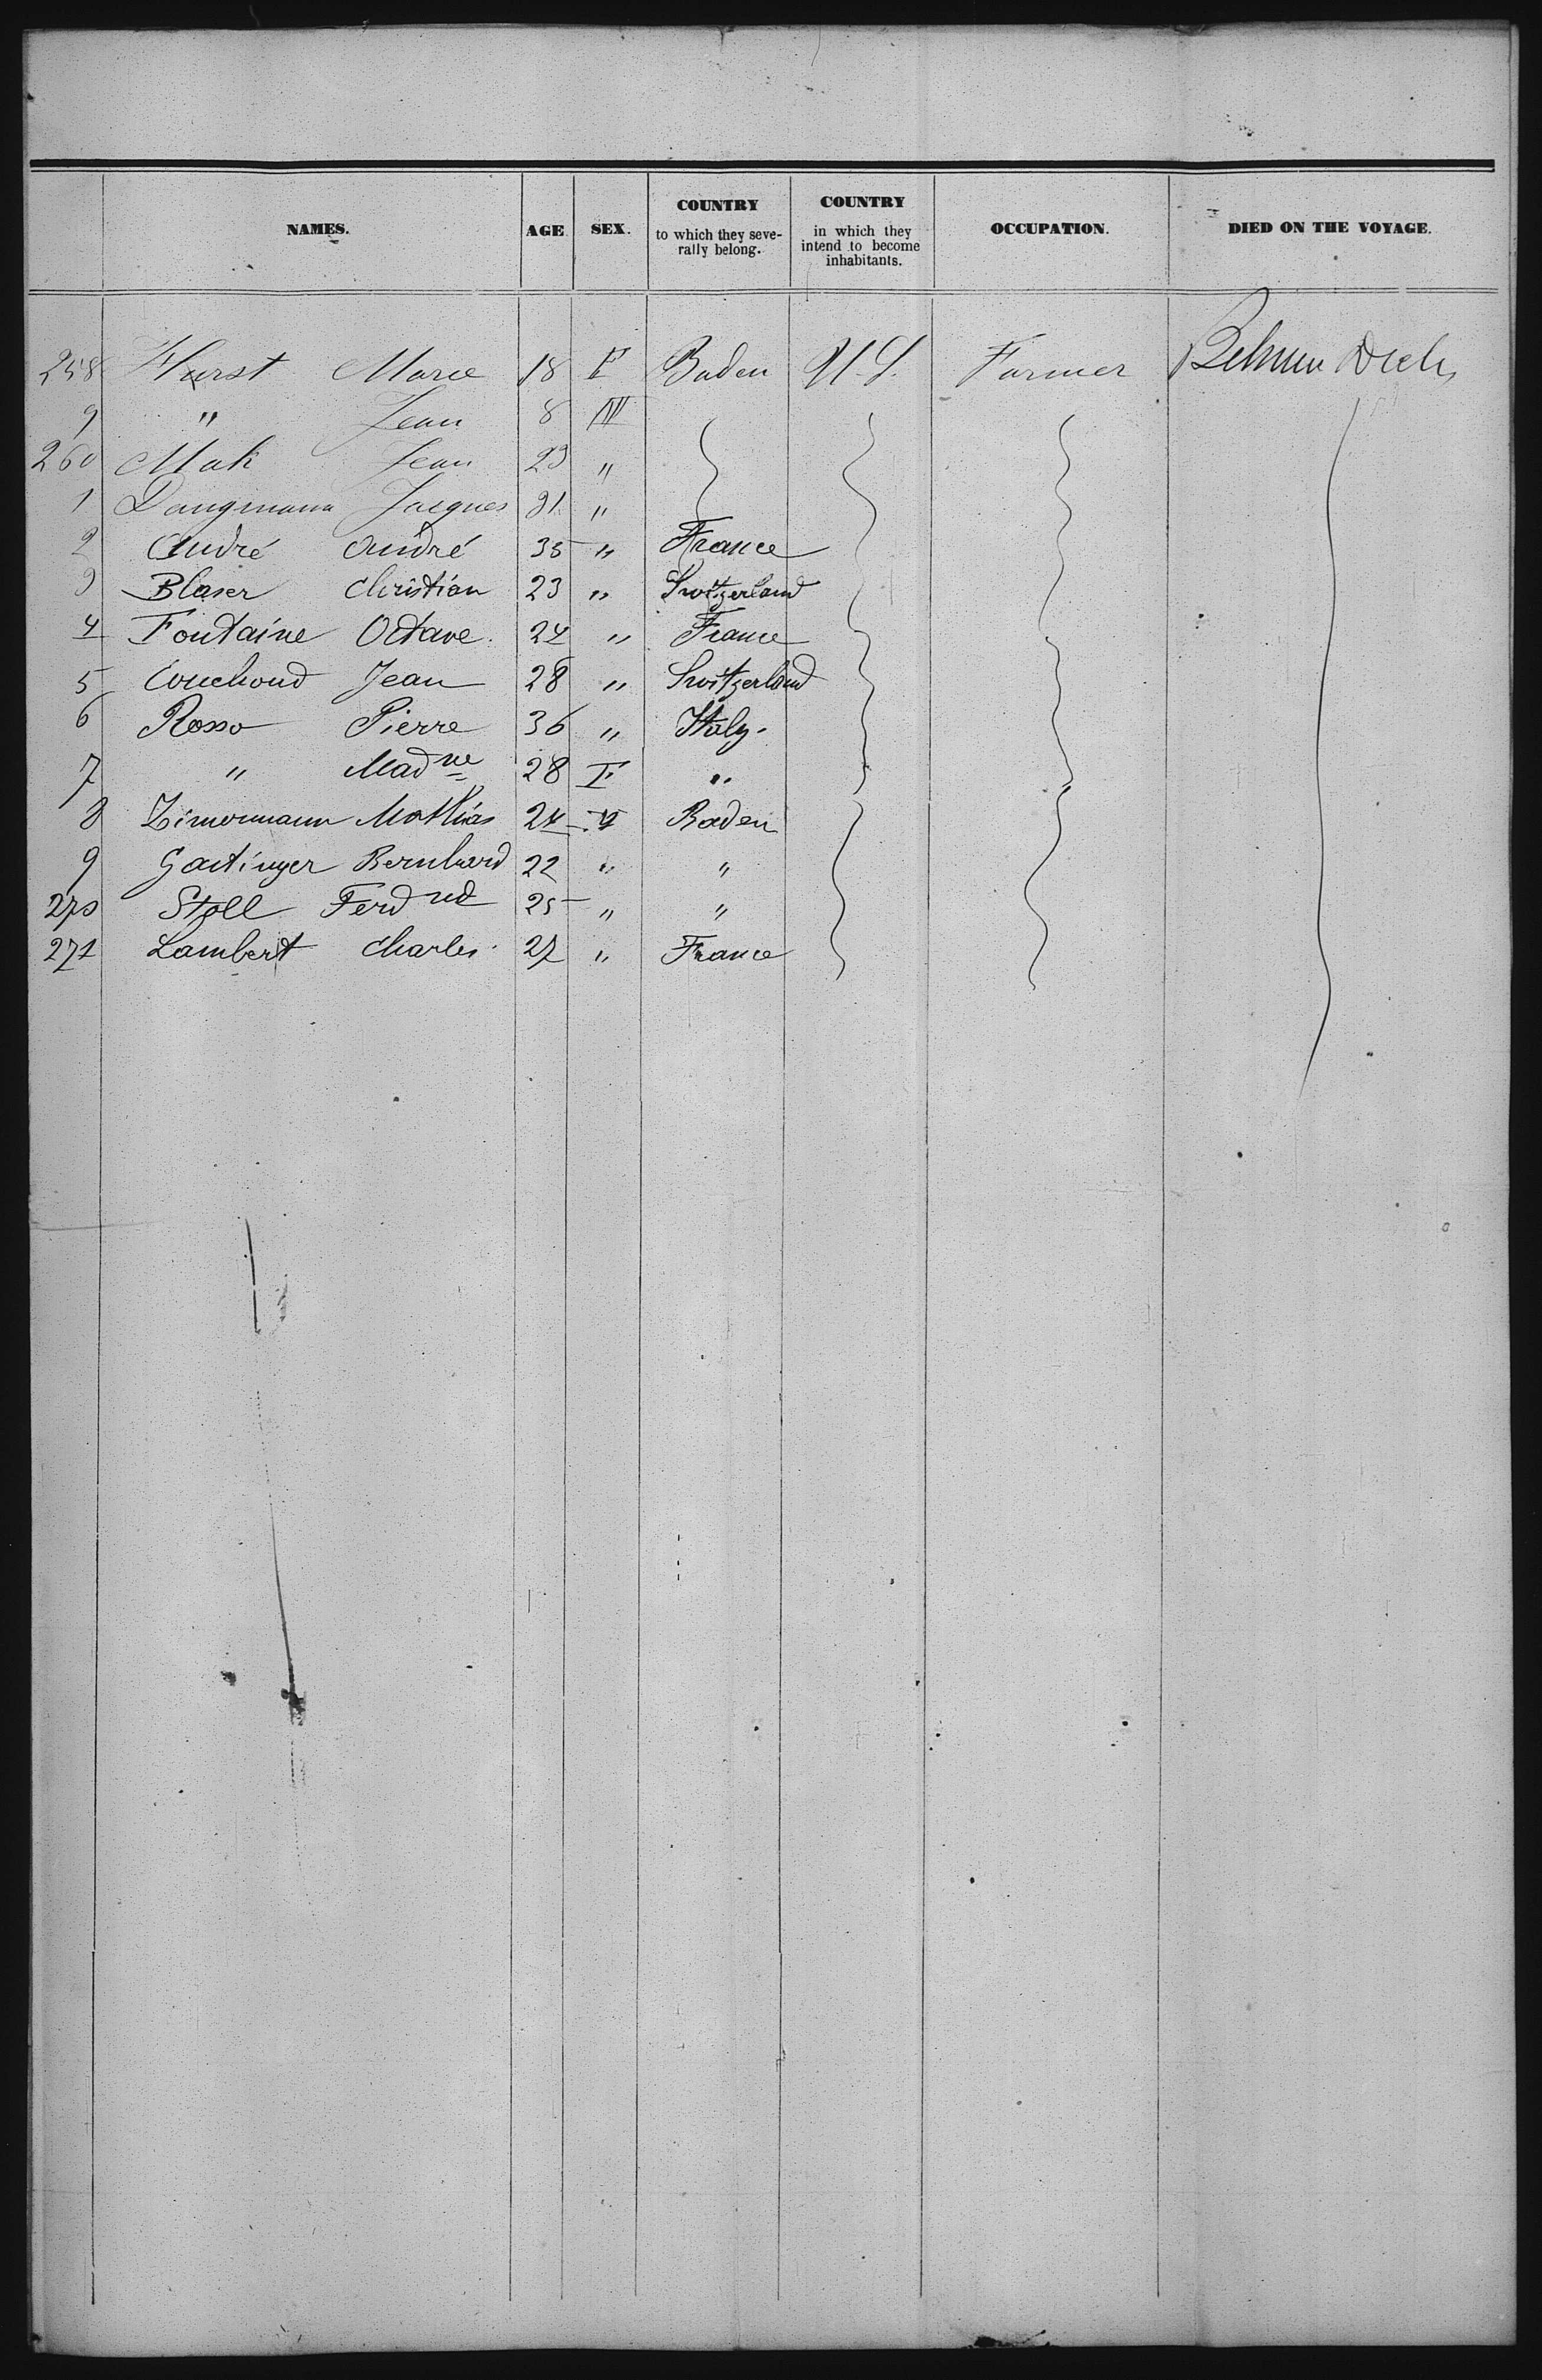 NAMES. AGE SEX. COUNTRY to which they seve- rally belong. COUNTRY in which they intend to become inhabitants. OCCUPATION. DIED ON THE VOYAGE.
258 Hurst Marie 18 F Baden U.S. Farmer Between Decks
9 " Jean 8 M
260 Mak Jean 23 "
1 Dangmann Jacques 31 "
2 André André 35 " France
3 Blaser Christian 23 " Switzerland
4 Fontaine Octave. 24 " France
5 Couchoud Jean 28 " Switzerland
6 Rosso Pierre 36 " Italy.
7 " Mad ne 28 F "
8 Zimermann Mathias 24 M Baden
9 Gaitinger Bernhard 22 " "
270 Stoll Ferd nd 25 " "
271 Lambert Charles 27 " France